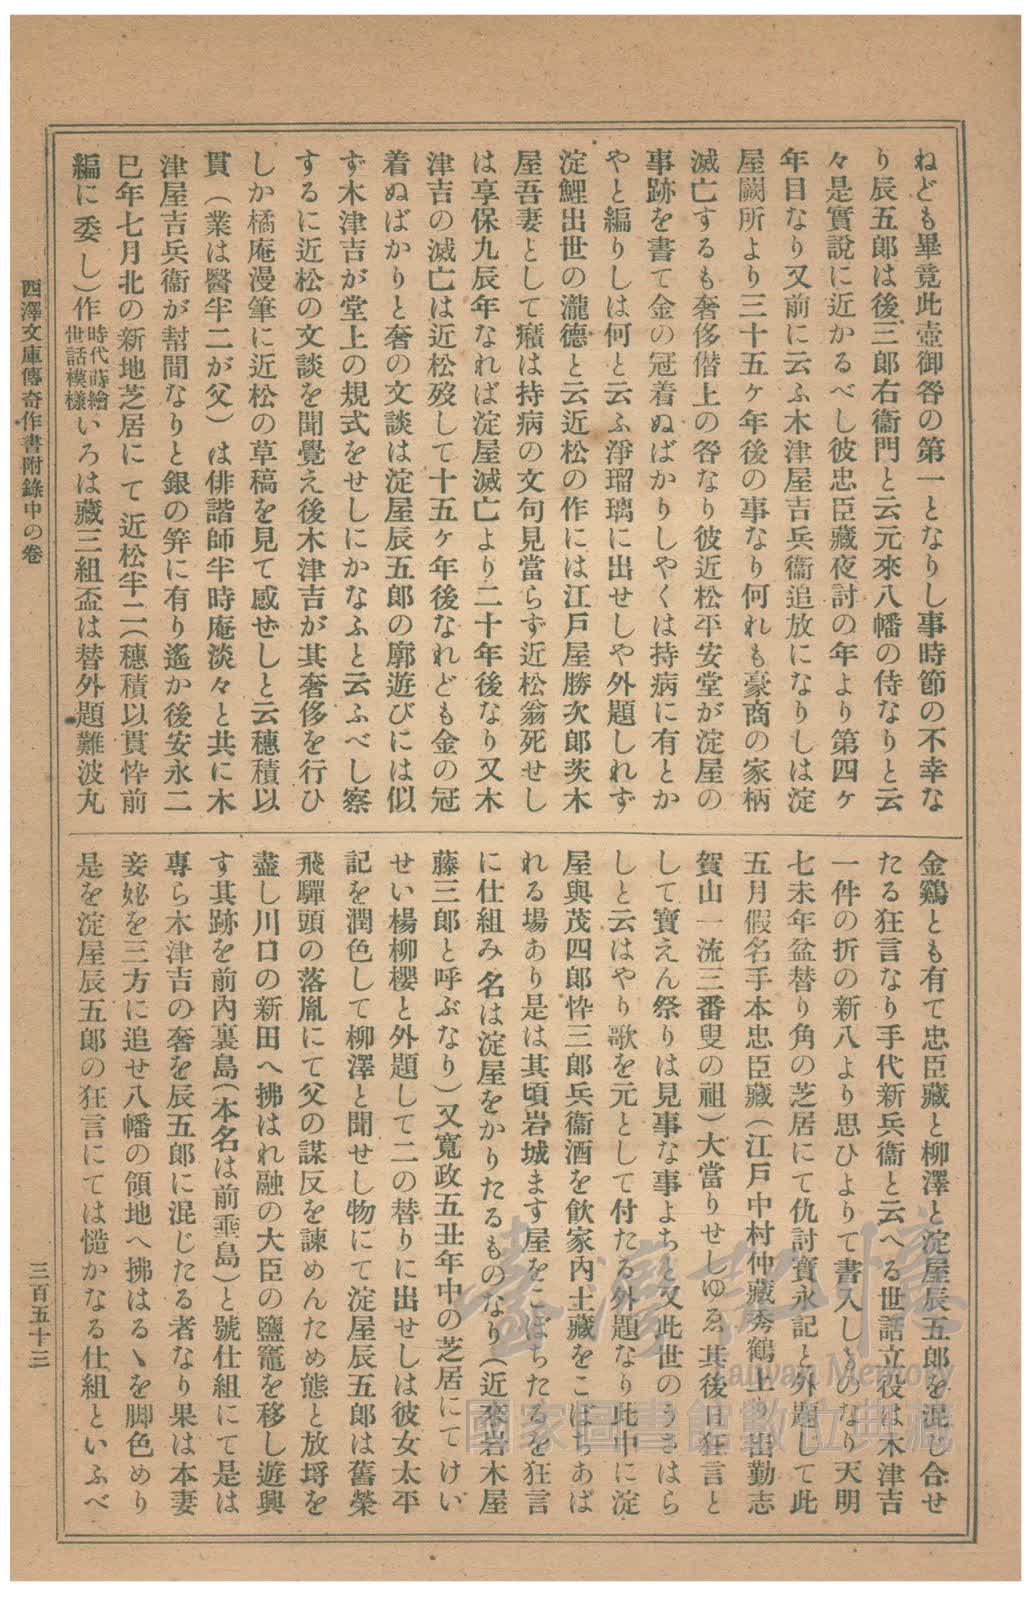 ねども畢竟此壺御咎の第一となりし事時節の不幸な
り辰五郎は後三郎右衞門と云元來八幡の侍なりと云
々是實說に近かるべし彼忠臣藏夜討の年より第四ヶ
年目なり又前に云ふ木津屋吉兵衞追放になりしは淀
屋闕所より三十五ヶ年後の事なり何れも豪商の家柄
滅亡するも奢侈僭上の咎なり彼近松平安堂が淀屋の
事跡を書て金の冠着ぬばかりしやくは持病に有とか
やと編りしは何と云ふ淨瑠璃に出せしや外題しれず
淀鯉出世の瀧德と云近松の作には江戶屋勝次郎茨木
屋吾妻として癪は持病の文句見當らず近松翁死せし
は享保九辰年なれば淀屋滅亡より二十年後なり又木
津吉の滅亡は近松歿して十五ヶ年後なれども金の冠
着ぬばかりと奢の文談は淀屋辰五郎の廓遊びには似
ず木津吉が堂上の規式をせしにかなふと云ふべし察
するに近松の文談を聞覺え後木津吉が其奢侈を行ひ
しか橘庵漫筆に近松の草稿を見て感ぜしと云穗積以
貫（業は醫半二が父）は俳諧師半時庵淡々と共に木
津屋吉兵衞が幇間なりと銀の笄に有り遙か後安永二
巳年七月北の新地芝居にて近松半二（穗積以貫忰前
編に委し）作時代蒔繪世話模樣いろは藏三組盃は替外題難波丸
金鷄とも有て忠臣藏と柳澤と淀屋辰五郎を混じ合せ
たる狂言なり手代新兵衞と云へる世話立役は木津吉
一件の折の新八より思ひよりて書入しものなり天明
七未年盆替り角の芝居にて仇討寶永記と外題して此
五月假名手本忠臣藏（江戶中村仲藏秀鶴上り出勤志
賀山一流三番叟の祖）大當りせしゆゑ其後日狂言と
して寶えん祭りは見事な事よちと又此世のうさはら
しと云はやり歌を元として付たる外題なり此中に淀
屋與茂四郎忰三郎兵衞酒を飮家內土藏をこぼちあば
れる場あり是は其頃岩城ます屋をこぼちたるを狂言
に仕組み名は淀屋をかりたるものなり（近來岩木屋
藤三郎と呼ぶなり）又寬政五丑年中の芝居にてけい
せい楊柳櫻と外題して二の替りに出せしは彼女太平
記を潤色して柳澤と聞せし物にて淀屋辰五郎は舊榮
飛驒頭の落胤にて父の謀反を諫めんため態と放埓を
盡し川口の新田へ拂はれ融の大臣の鹽竈を移し遊興
す其跡を前內裏島（本名は前垂島）と號仕組にて是は
專ら木津吉の奢を辰五郎に混じたる者なり果は本妻
妾妣を三方に追せ八幡の領地へ拂はるゝを脚色めり
是を淀屋辰五郎の狂言にては慥かなる仕組といふべ
西澤文庫傳奇作書附錄中の卷
三百五十三
臺灣記憶
Taiwan Memory
國家圖書館數位典藏